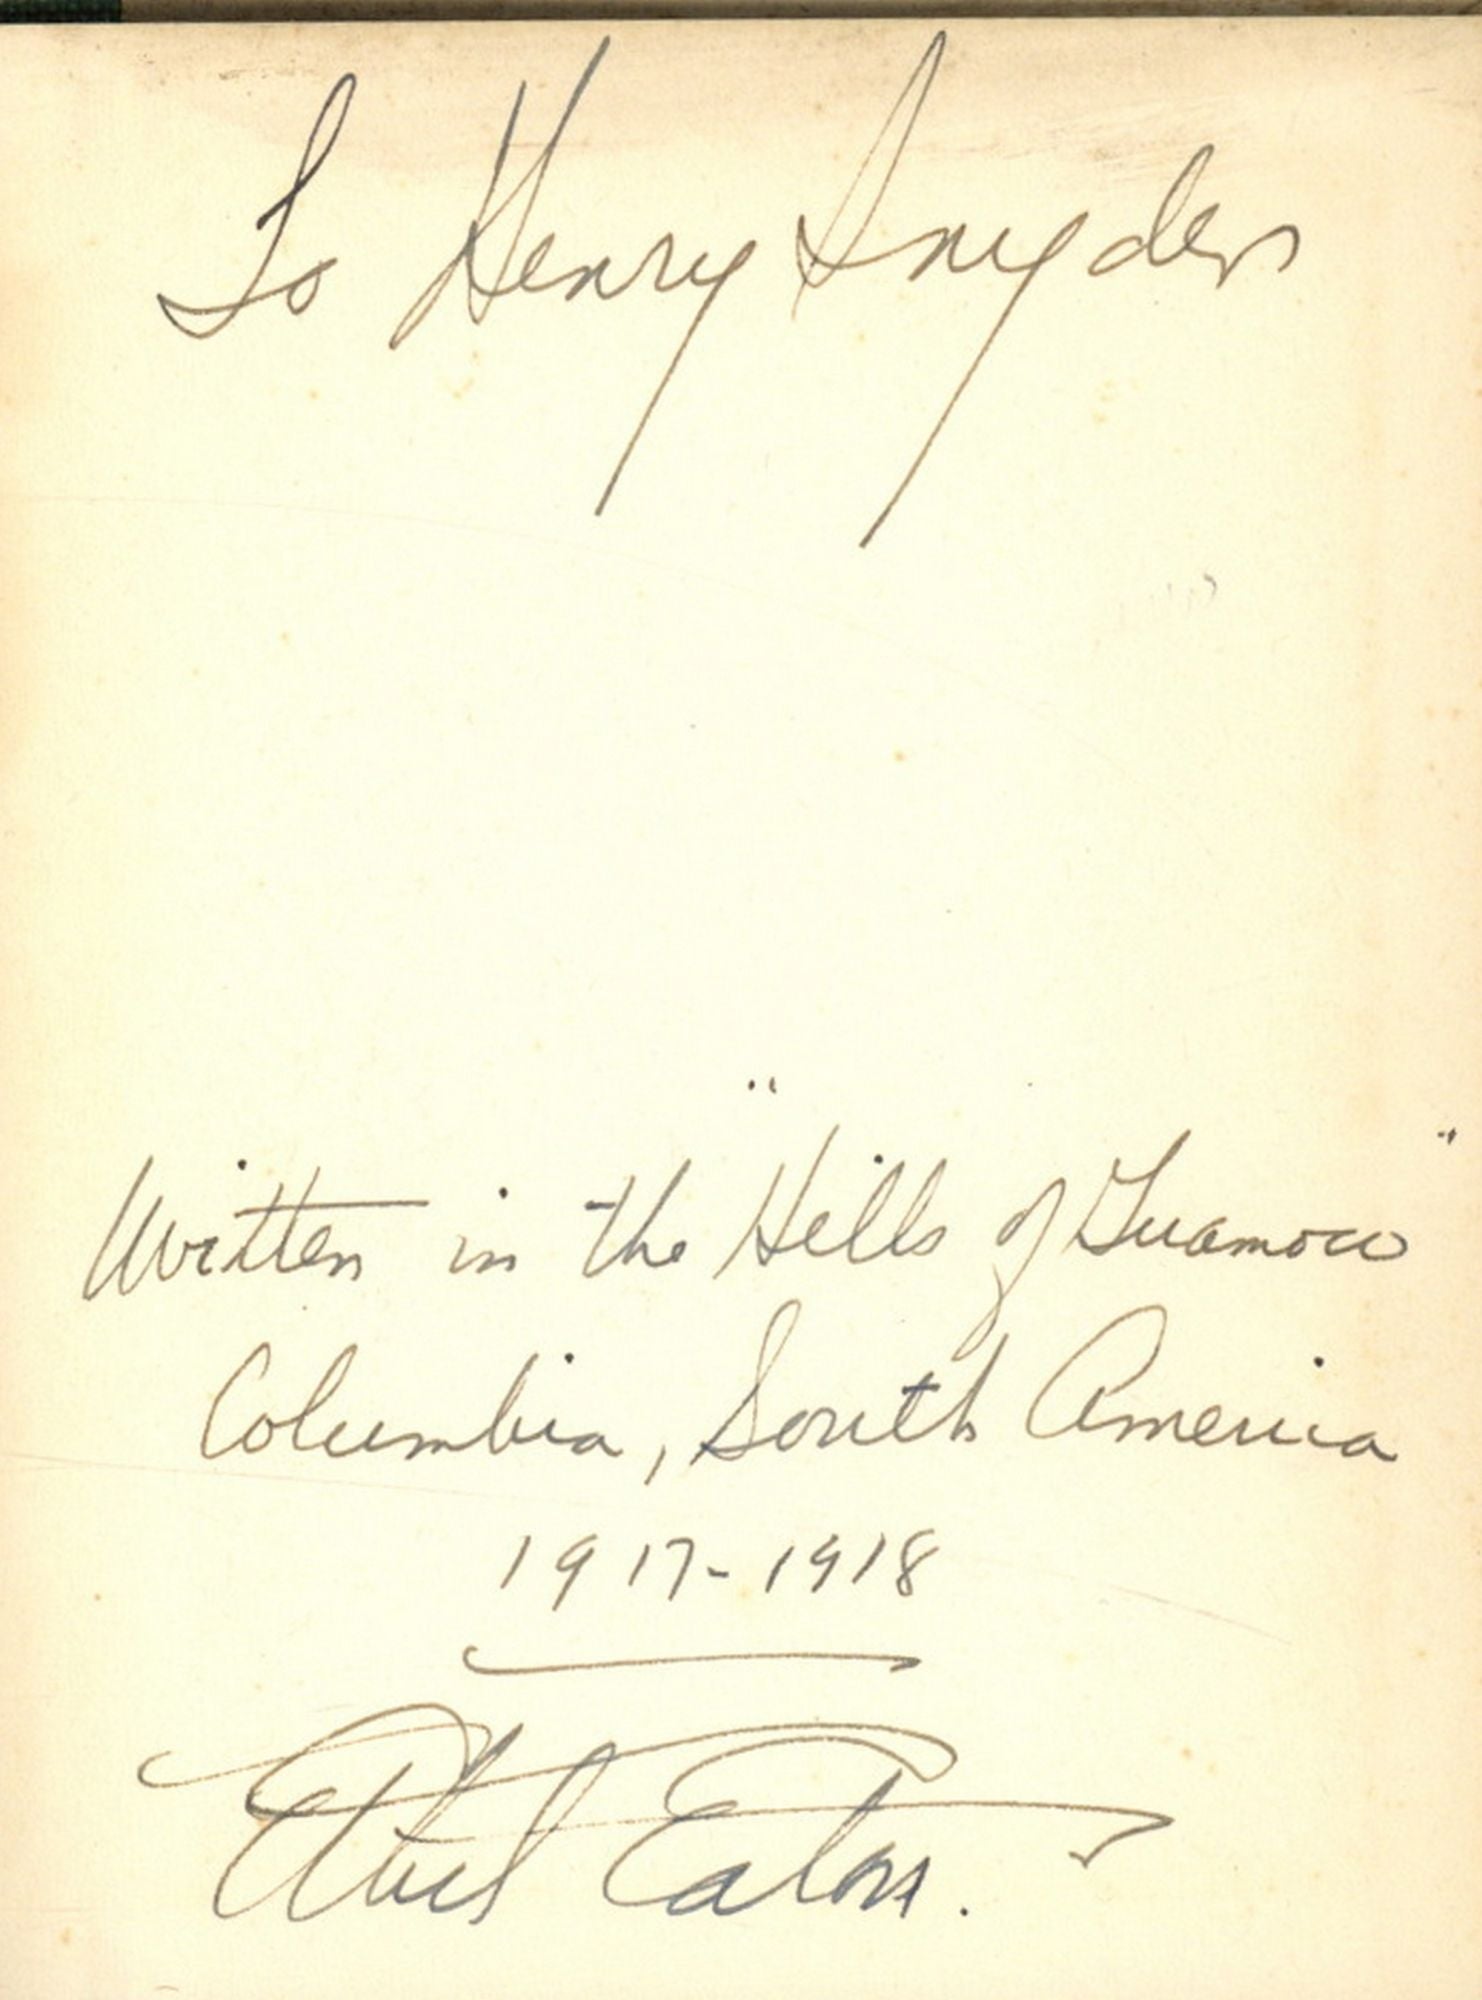 To Henry Snyder
Written in the "Hills of Guamoco"
Columbia, South America
1917-1918
Ethel Eaton.